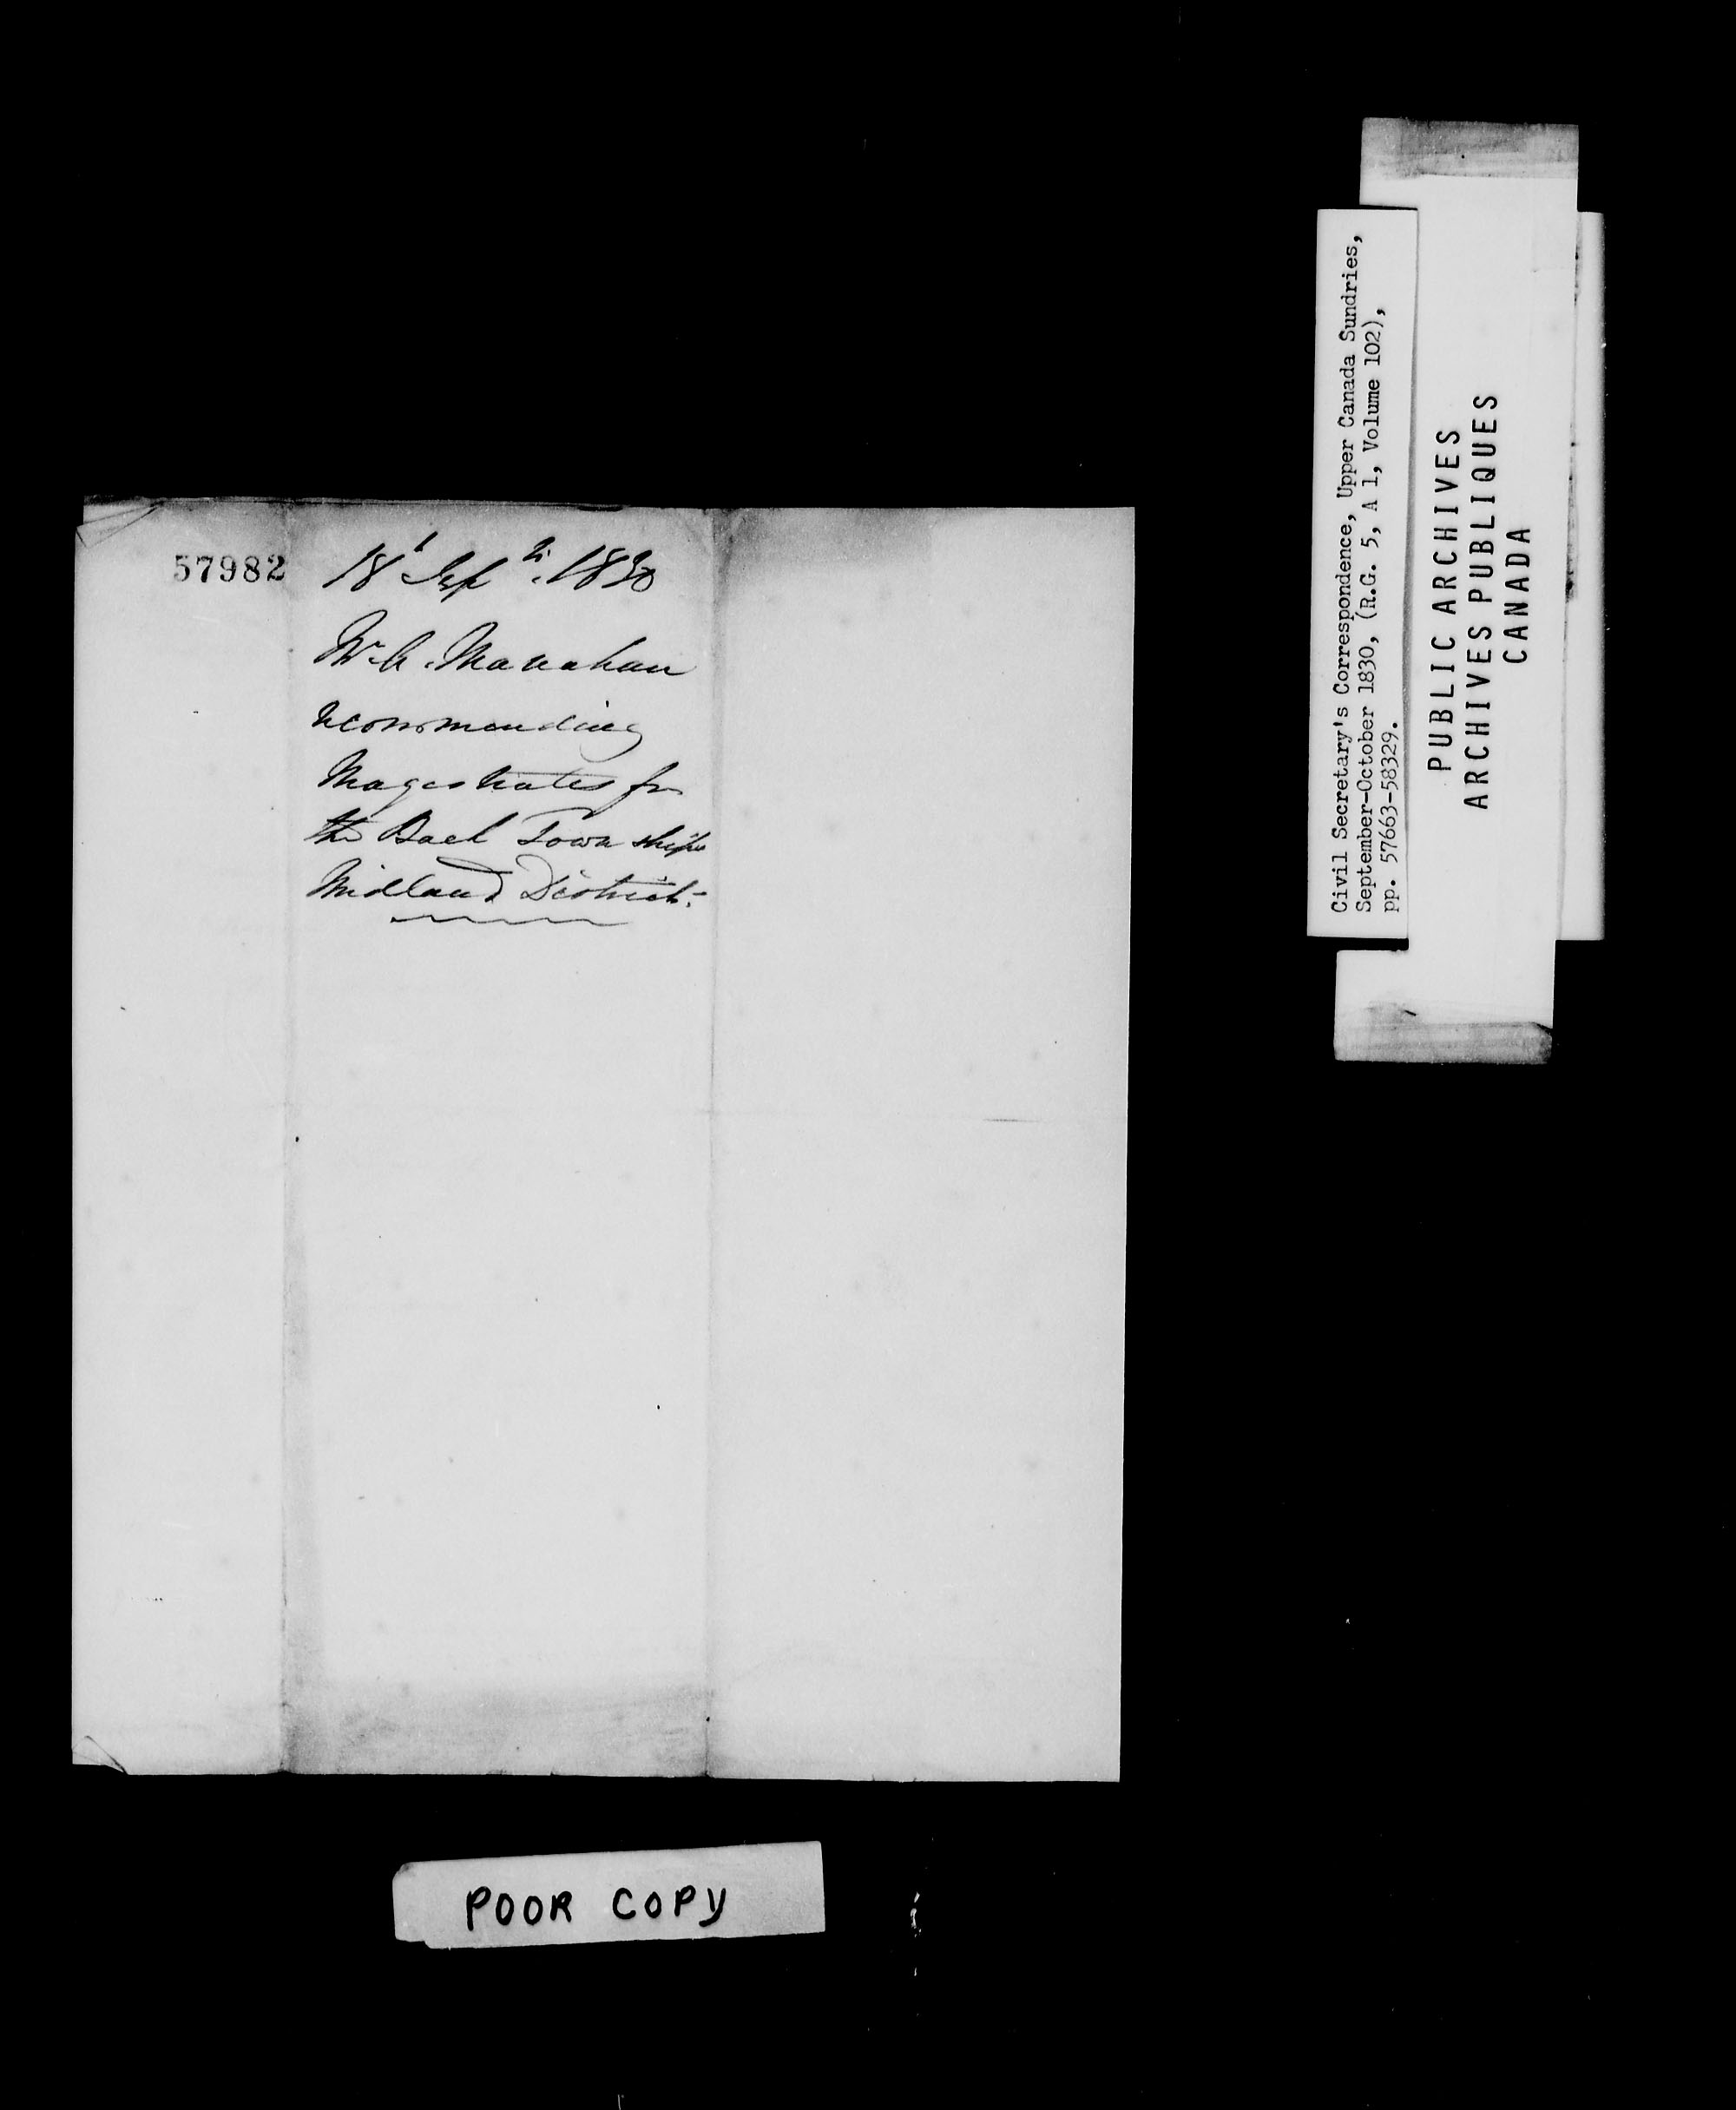 57982
18 Sepr. 1830
Mr A. Manahan
recommending
Magistrates for
the Back Townships
Midland District.
POOR COPY
Civil Secretary's Correspondence, Upper Canada Sundries,
September-October 1830, (R.G. 5, A 1, Volume 102),
pp. 57663-58329.
PUBLIC ARCHIVES
ARCHIVES PUBLIQUES
CANADA